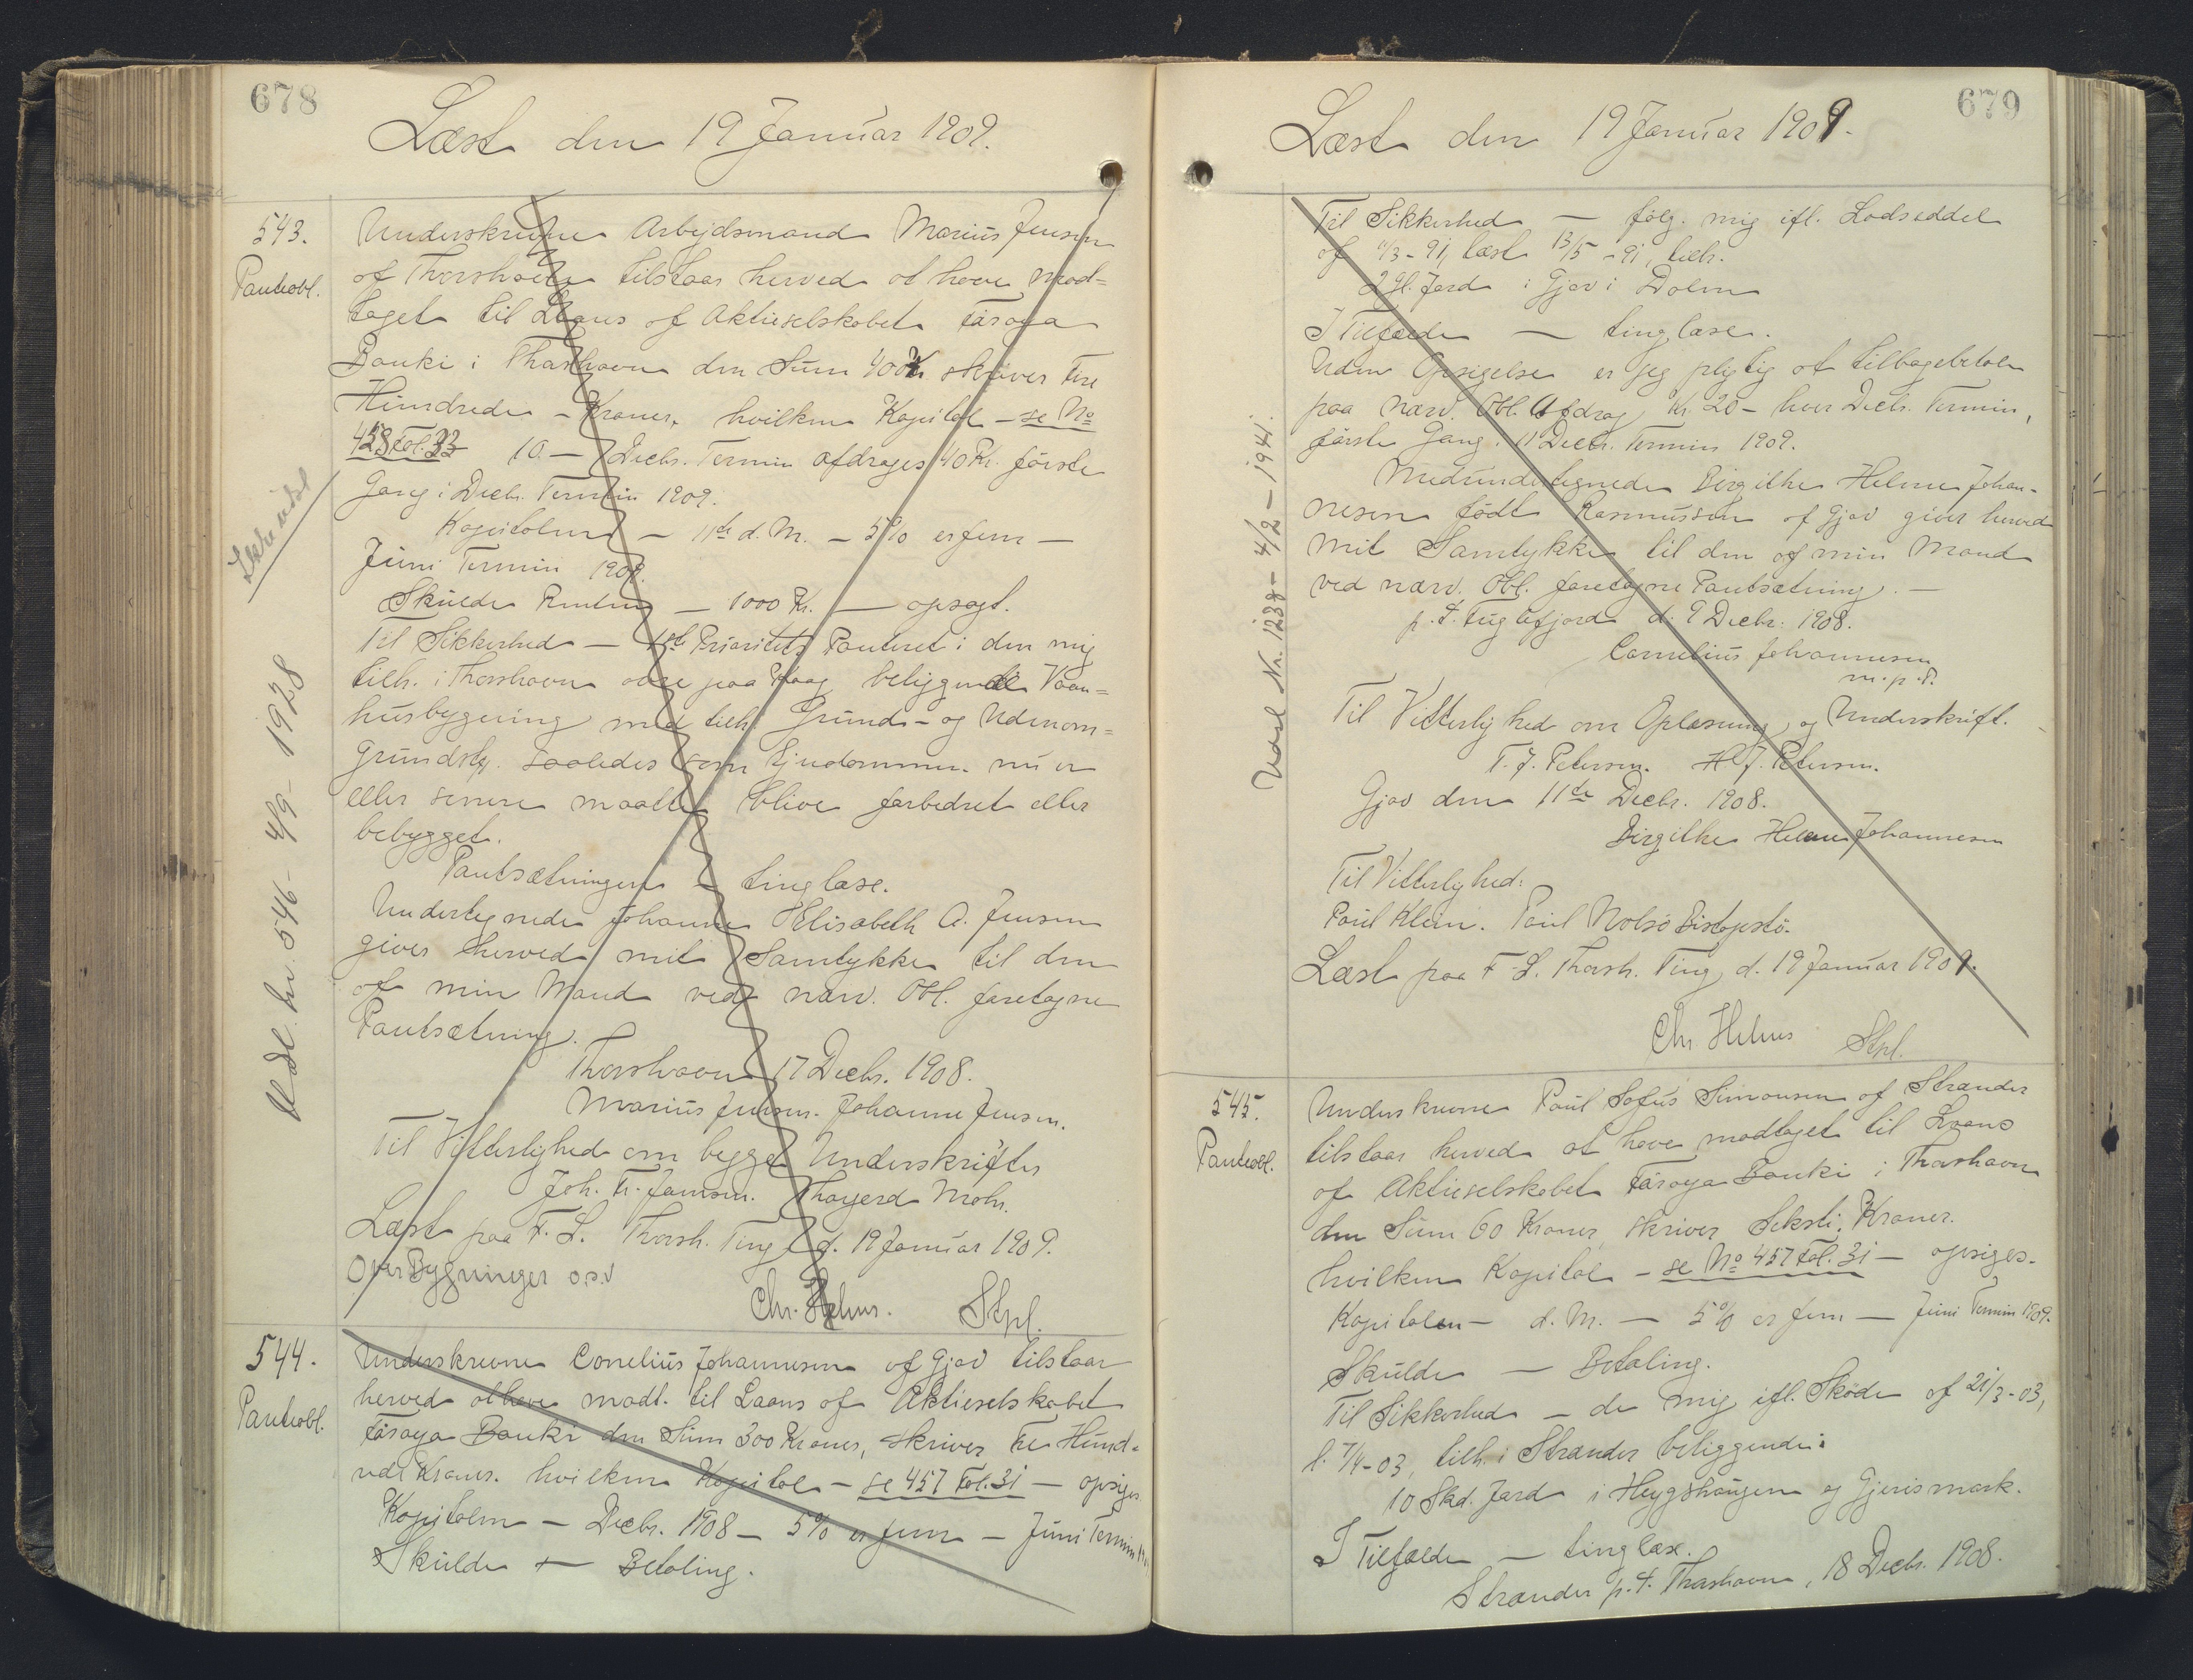 678
Læst den 19 Januar 1909.
543.
Panteobl.
Underskrevne Arbejdsmand Marius Jensen
af Thorshavn tilstaar herved at have mod-
taget til Laans af Aktieselskabet Föroya
Banki i Thorshavn den Sum 400 Kr skriver Fire
Hundrede - Kroner, hvilken Kapital - se No
458 Fol. 33 10 - Decbr. Termin afdrages 40 Kr. første
Gang i Decbr. Termin 1909.
Kapitalen - 11te d. M. - 5% er fem -
Juni Termin 1909.
Skulde Renten - 1000 Kr. - opsagt.
Til Sikkerhed - 1st Prioritets Panteret i den mig
tilh. i Thorshavn belliggende Vaan=
husbygning med tilh. Grund- og Udenom=
grundstk. saaledes som Ejendommen nu er
eller senere maatte blive forbedret eller
bebygget.
Pantsætningen - tinglæse.
Undertegnede Johanne Elisabeth A. Jensen
giver herved mit Samtykke til den
af min Mand ved nærv. Obl. foretagne
Pantsætning.
Thorshavn 17 Decbr. 1908.
Marius Jensen. Johanne Jensen.
Til Vitterlighed om begge Underskrifter
Joh. Fr. Mohr.
Læst paa F. L. Thorsh. Ting d. 19 Januar 1909.
Over Bygninger o.s.v
Chr. Helms. Stpl.
Udsl. Nr. 546 - 4/9 - 1928
544.
Panteobl.
Underskrevne Conelius Johannesen af Gjov tilstaar
herved at have modt. til Laans af Aktieselskabet
Föroya Banki den Sum 300 Kroner, skriver Tre Hund-
rede Kroner. hvilken Kapital - se 457 Fol. 31 - opsiges
Kapitalen - Decbr. 1908 - 5% er fem - Juni Termin
Skulde - Betaling.
679
Læst den 19 Januar 1909.
Til Sikkerhed - følg. mig ifl. Lodseddel
af 11/3-91, læst 13/5-91, tilh.
2 Gl. Jord i Gjov i Dolm
I Tilfælde - tinglæse.
Uden Opsigelse er jeg pligtig at tilbagebetale
paa nærv. Obl. Afdrag Kr. 20 - hver Decbr. Termin,
første Gang 11 Decbr. Termin 1909.
Medundertegnede Birgithe Helene Johan-
nesen født Rasmussen af Gjov giver herved
mit Samtykke til den af min Mand
ved nærv. Obl. foretagne Pantsætning. -
p. t. Fuglefjord d. 9 Decbr. 1908.
Cornelius Johannesen
m. p. P.
Til Vitterlighed om Oplæsning og Underskrift.
T. J. Petersen. H J. Petersen.
Gjov den 11te Decbr. 1908.
Birgithe Helene Johannesen
Til Vitterlighed:
Poul Klein. Poul Nolsö Bistopstö.
Læst paa F. L. Thorsh. Ting d. 19 Januar 1909.
Chr. Helms Stpl.
Udsl Nr. 1238 - 4/2 - 1941.
545.
Panteobl.
Underskrevne Poul Sofus Simonsen af Strænder
tilstaar herved at have modtaget til Laans
af Aktieselskabet Föroya Banki i Thorshavn
den Sum 60 Kroner, skriver Seksti, Kroner.
hvilken Kapital - se No 457 Fol. 31 - opsiges.
Kapitalen - d. M. - 5% er fem - Juni Termin 1909.
Skulde - Betaling.
Til Sikkerhed - de mig ifl. Skøde af 21/3-03,
l. 7/4-03, tilh. i Strænder beliggende:
10 Skd. Jord i Heygshaugen og Gjerismark.
I Tilfælde - tinglæse.
Strænder p. t. Thorshavn, 18 Decbr. 1908.